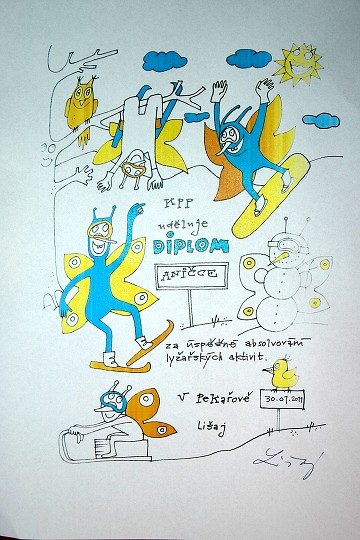 KPP
uděluje
DIPLOM
ANIČCE
za úspěšné absolvování
lyžařských aktivit.
V Pekařově
30.01.2011
Lišaj